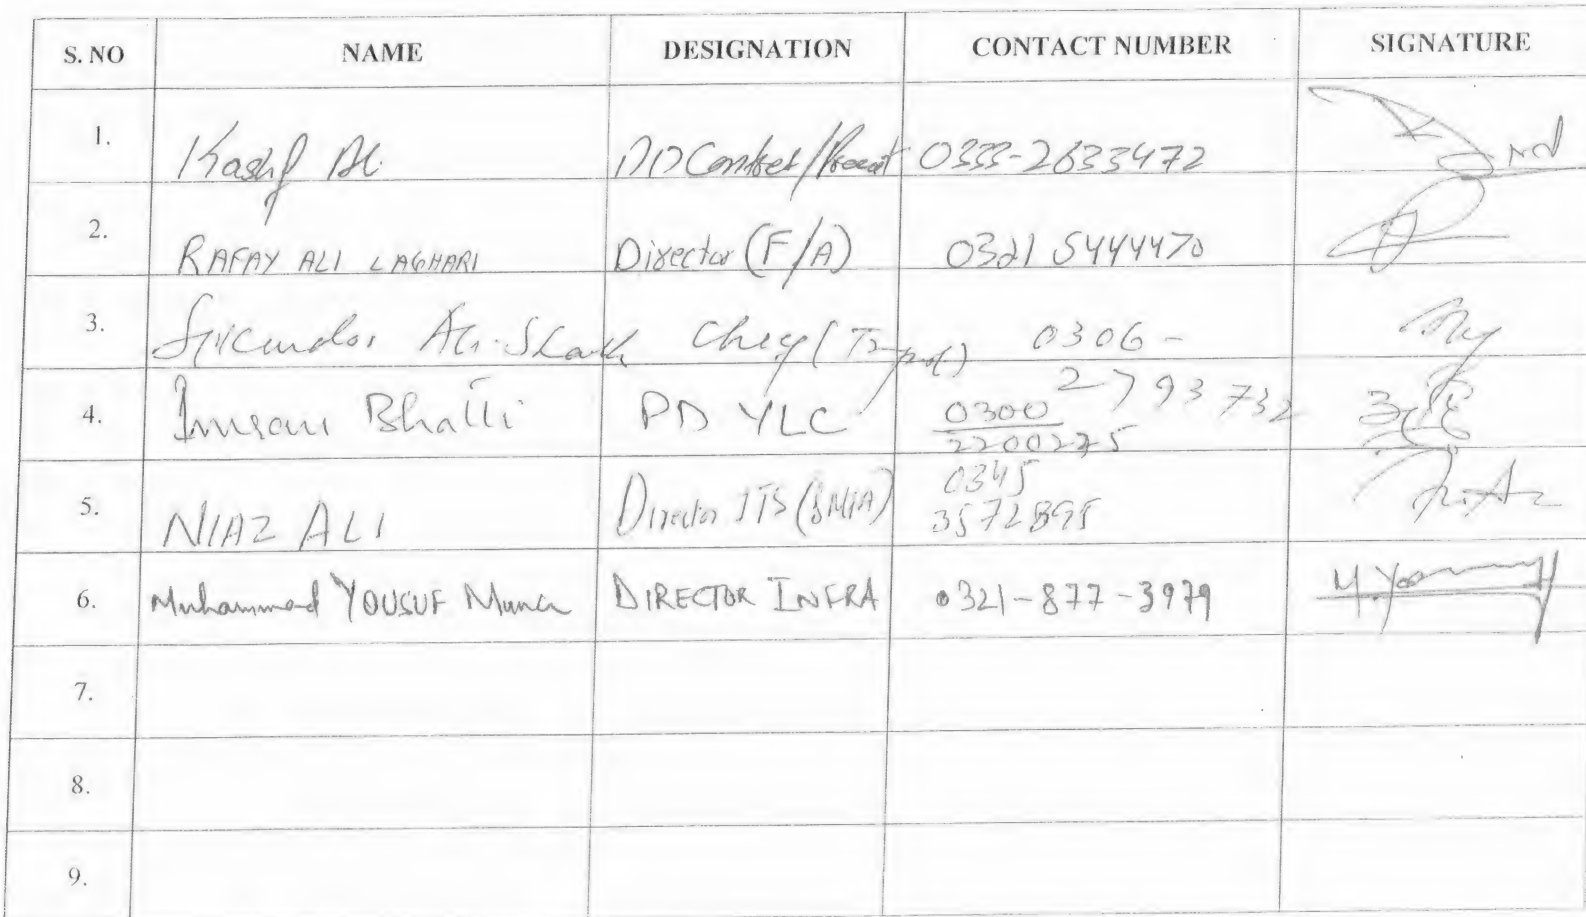 S. NO NAME DESIGNATION CONTACT NUMBER SIGNATURE
1. Kashif Ali DD Contract/ 0333-2633472
2. RAFAY ALI LAGHARI Director (F/A) 0321 5444470
3. Ali 0306-
2793732
4. Imran Bhatti PD YLC 0300
2200275
5. NIAZ ALI Director ITS ( 0345
3572895
6. Muhammad YOUSUF DIRECTOR INFRA 0321-877-3979 M.
7.
8.
9.